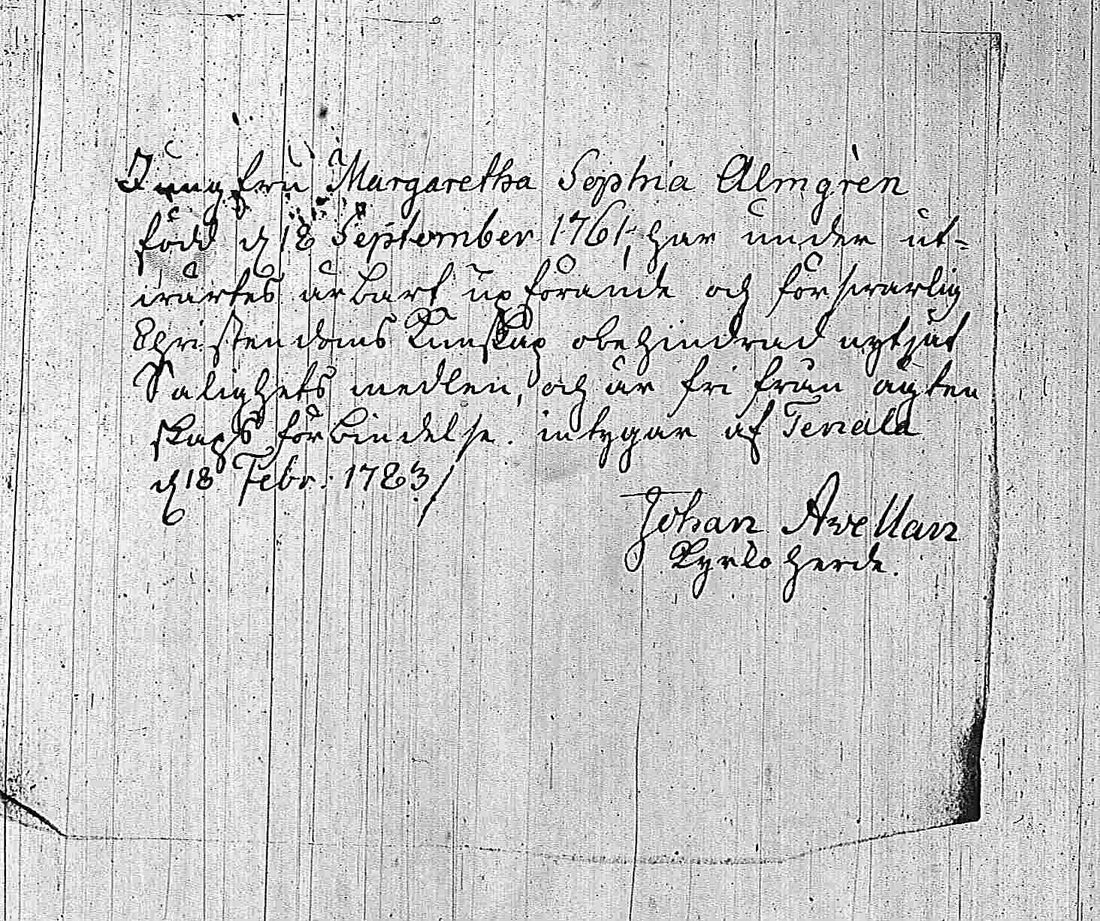 Jungfru Margaretha Sophia Almgrèn
född d 18 September 1761, har under ut-
wärtes ärbart upförande och förswarlig
Christendoms Kunskap obehindrad nytjat
Salighets medlen, och är fri från ägten
skaps förbindelse. intygar af Tenala
d 18 Febr: 1783/
Johan Avellan
Kyrko Herde.